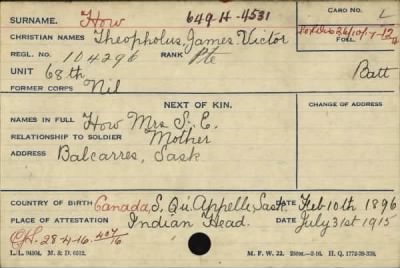 SURNAME. How 649-H-4531 CARD NO. L
CHRISTIAN NAMES Theopholus, James Victor FOLL.
REGL. NO. 104296 RANK Pte
UNIT 68th Batt
FORMER CORPS Nil
NEXT OF KIN. CHANGE OF ADDRESS
NAMES IN FULL How Mrs S. E.
RELATIONSHIP TO SOLDIER Mother
ADDRESS Balcarres, Sask
COUNTRY OF BIRTH Canada, S. Qu'Appelle, Sask. DATE Feb 10th 1896
PLACE OF ATTESTATION Indian Head. DATE July 31st 1915
28-4-16. 407/16
L. L. 94504. M. & D. 6512. M. F. W. 22. H. Q. 1772-39-339.